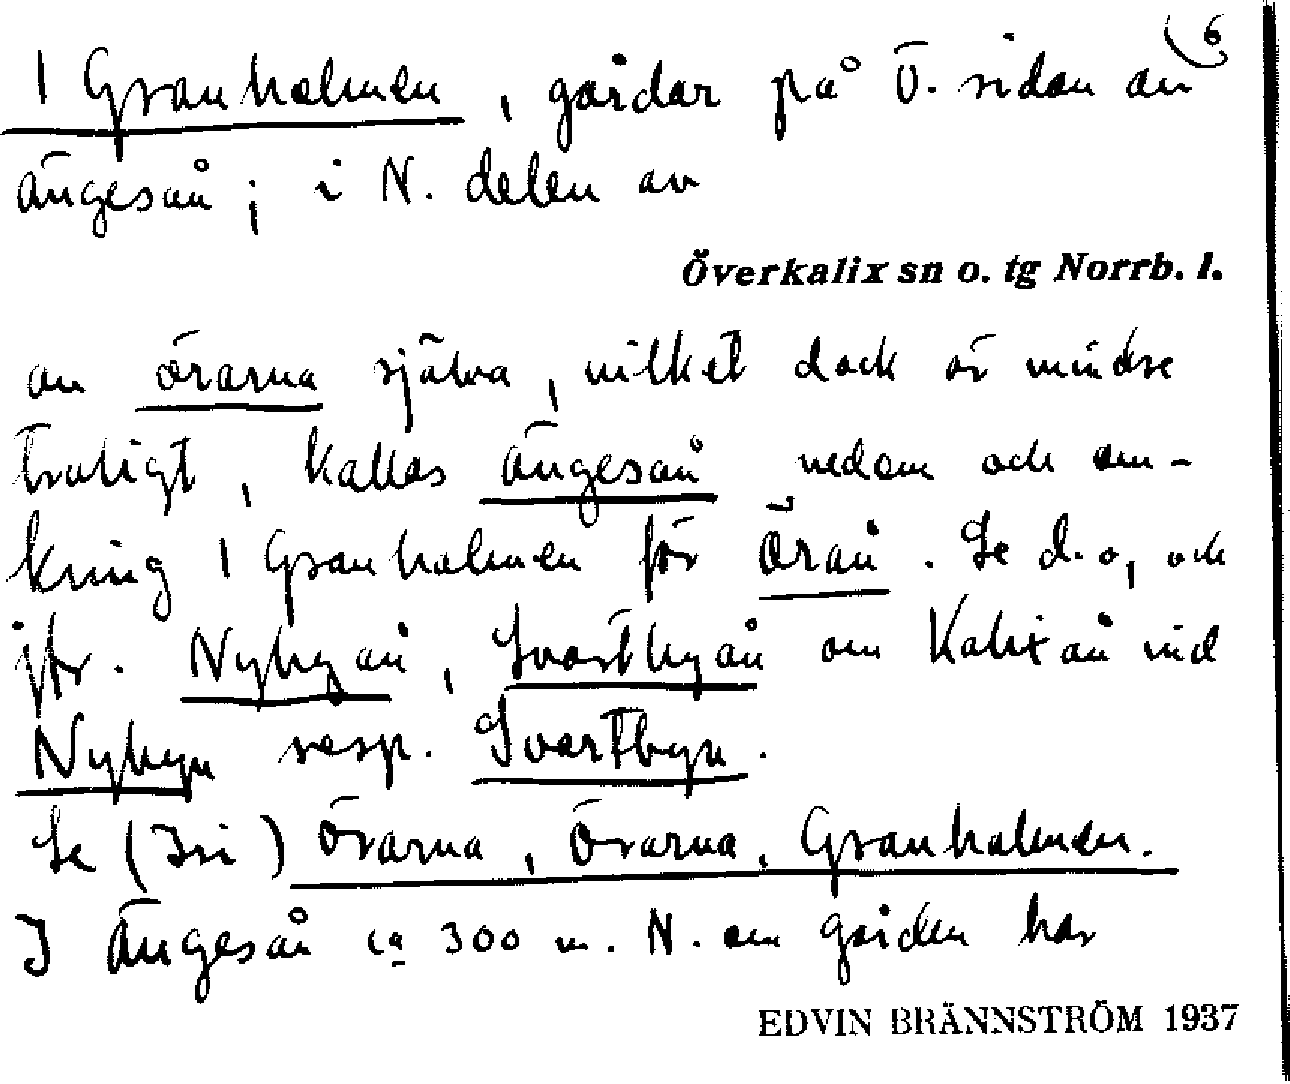 (6
1 Granholmen, gårdar på Ö. sidan av
Ängesån; i N. delen av
Överkalix sn o. tg Norrb. l.
om örarna själva, vilket dock är mindre
troligt, kallas Ängesån nedom och om-
kring 1 Granholmen för Örån. Se d. o, och
jfr. Nybyån, Svartbyån om Kalixån vid
Nybyn resp. Svartbyn.
Se (Isi) Örarna, Örarna, Granholmen.
I Ängesån ca 300 m. N. om gården har
EDVIN BRÄNNSTRÖM 1937